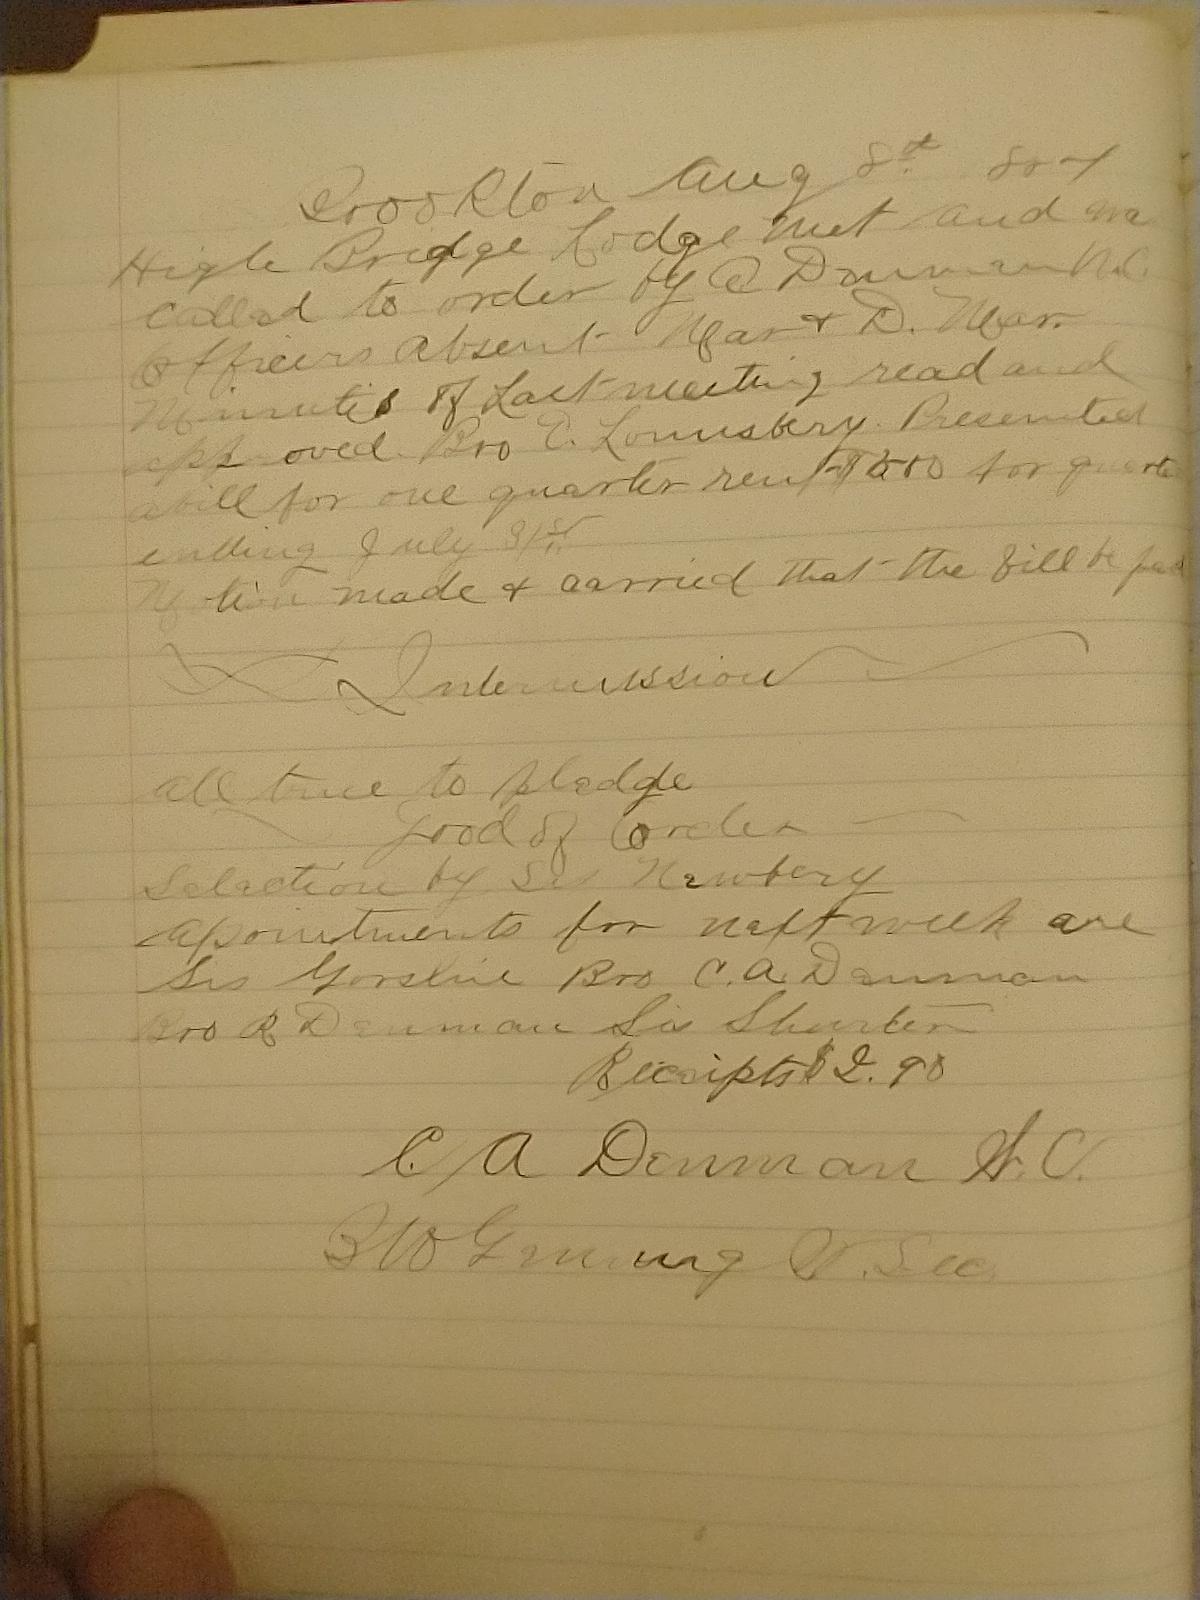 Brookton Aug 8th
High Bridge Lodge met and wa
called to order by C Denman W.C.
Officers Absent Mar & D. Mar.
Minutes of Last meeting read and
approved. Bro E. Lounsbery. Presented
a bill for one quarter rent $ 500 for quarte
ending July 31st
Motion made & carried that the bill be paid
Intermission
all true to pledge
Good of Order
Selection by Sis Newbery
apointments for next week are
Sis Gorsline Bro C. A. Denman
Bro R Denman Sis Shurter
Receipts $2.90
C A Denman W. C.
B W W. Sec